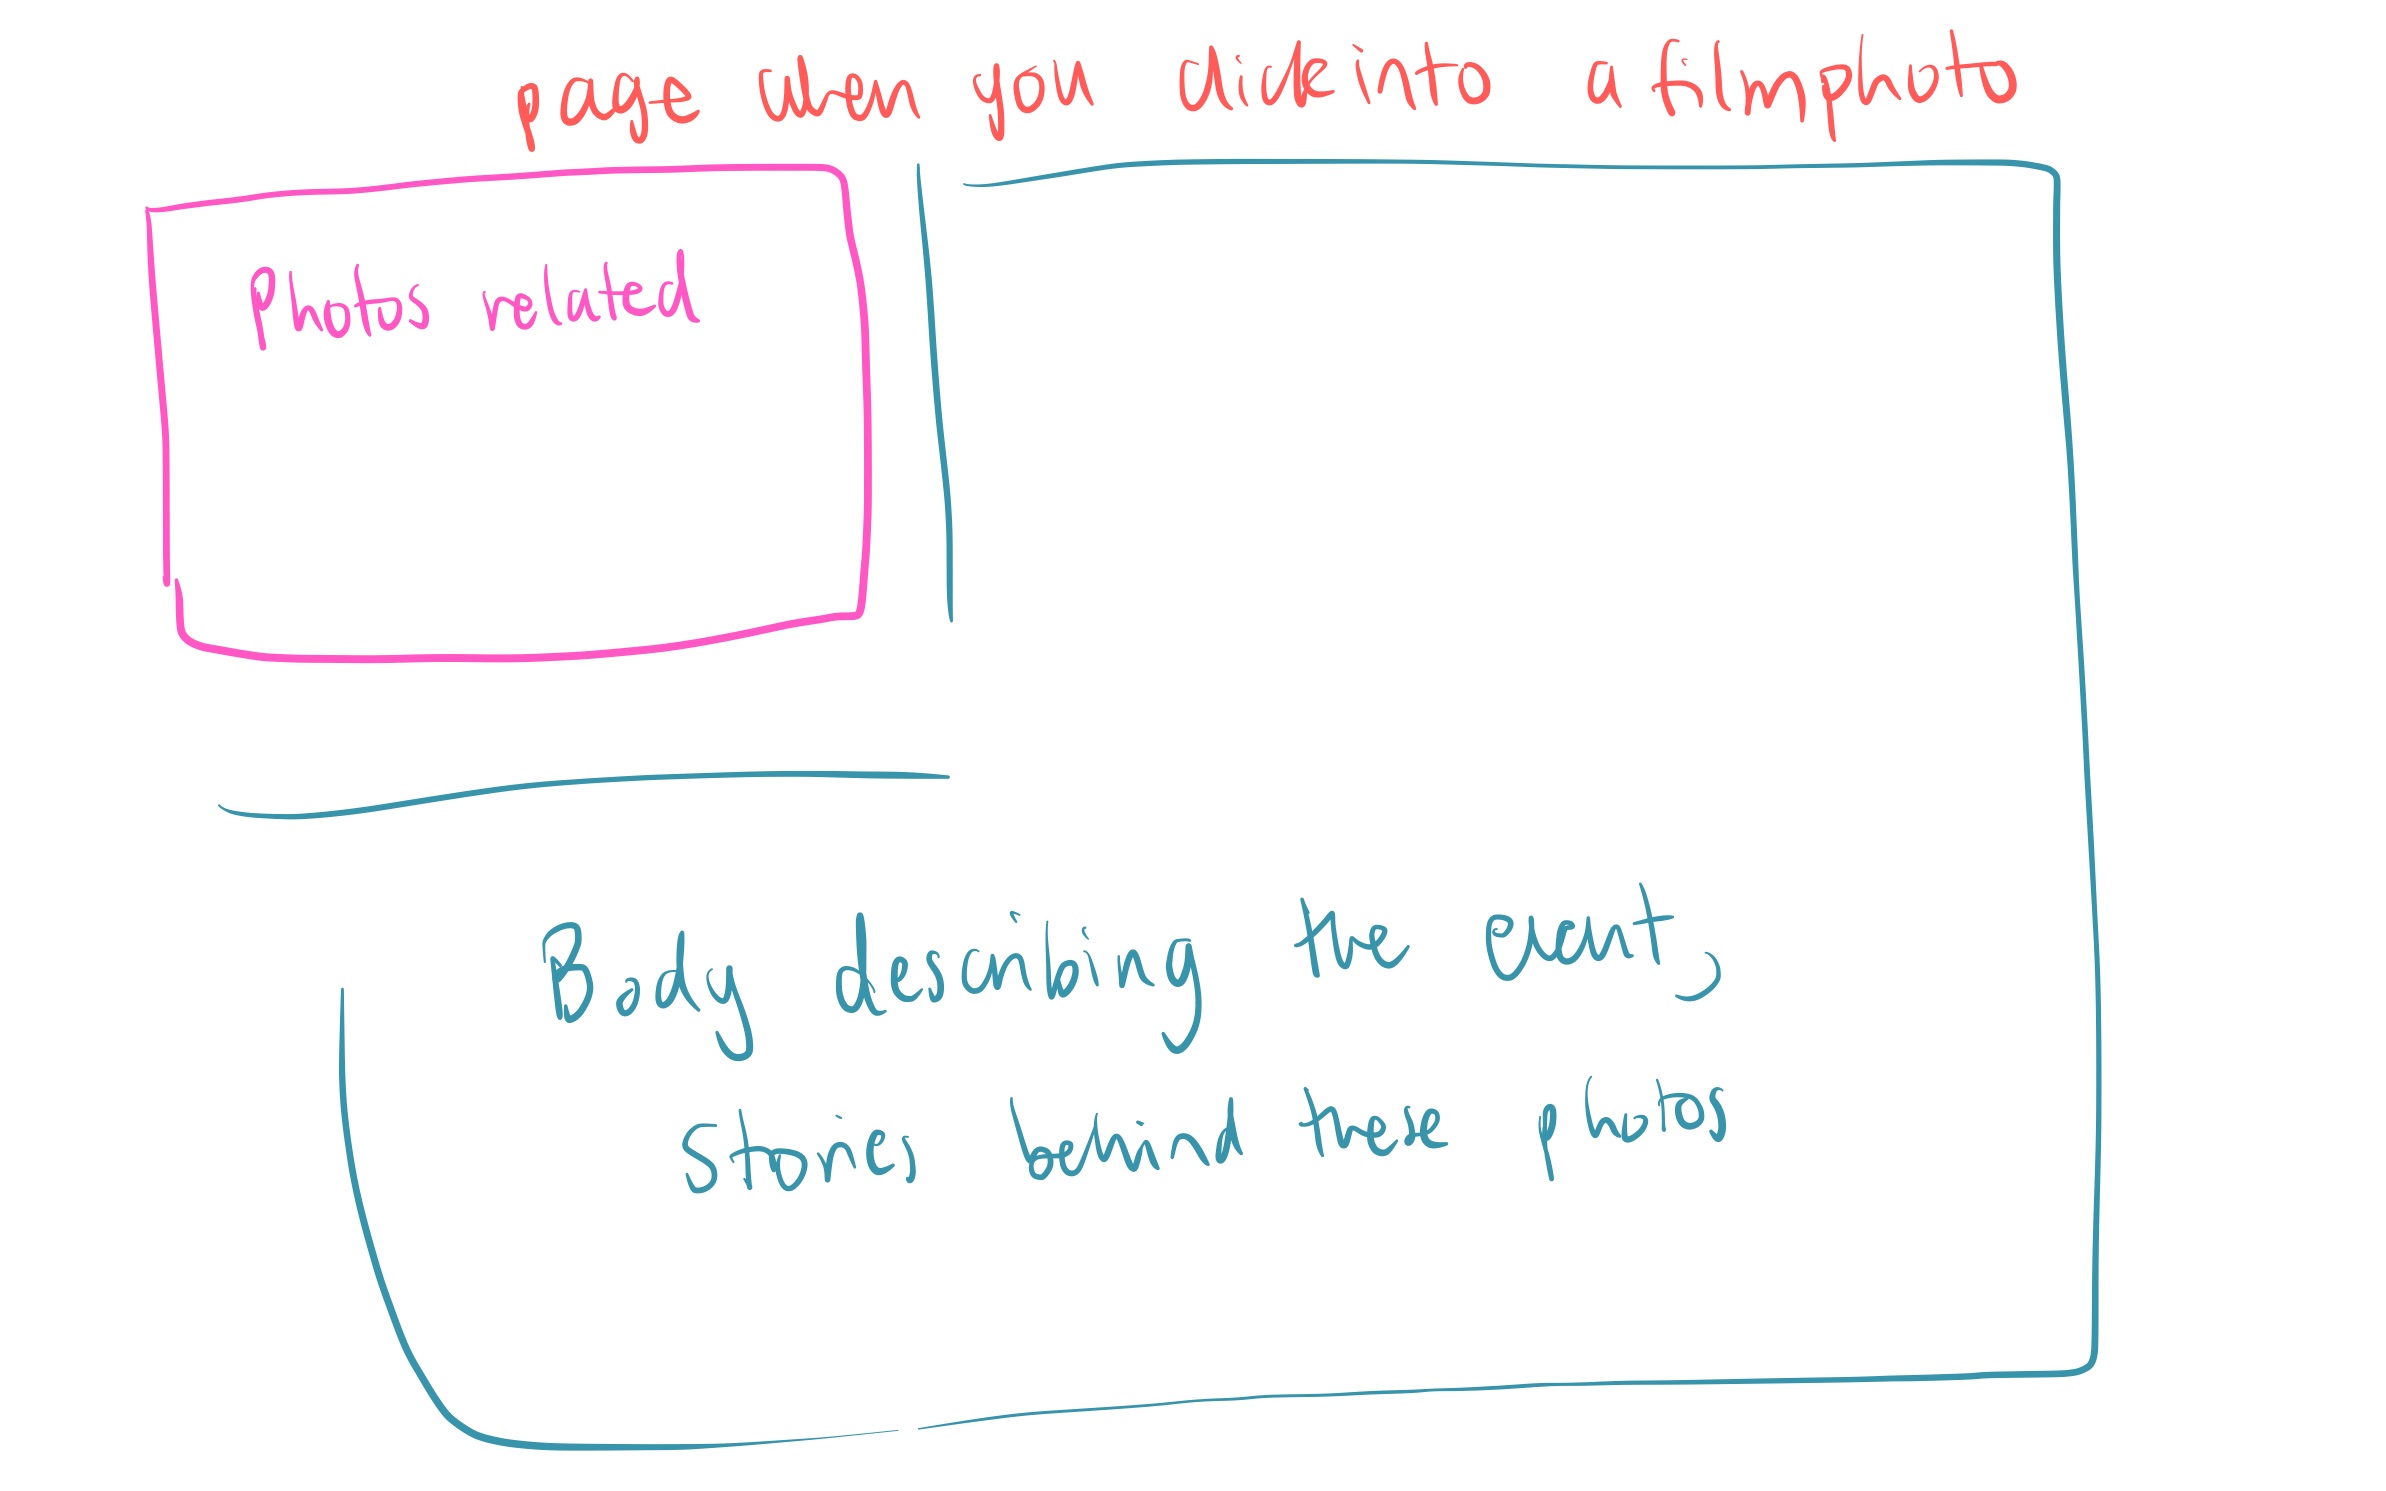 page when you click into a film photo
Photos related
Body describing the event,
stories behind these photos